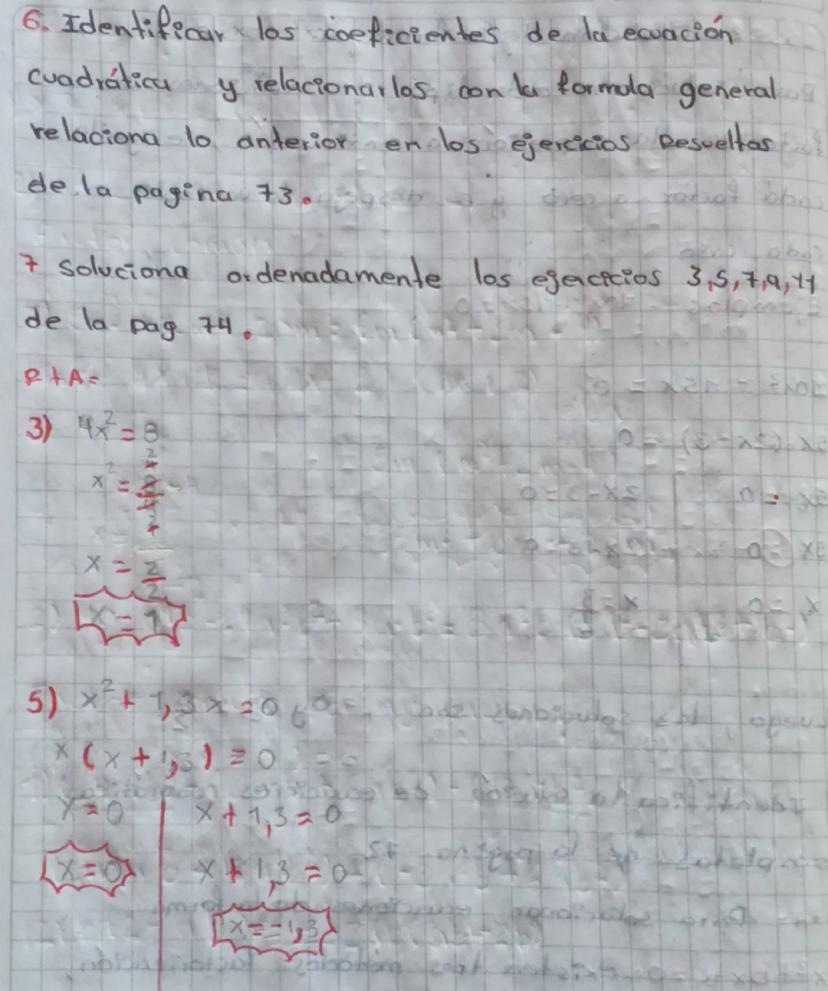 6. Identificar los coeficientes de la ecuación
cuadrática y relacionarlos con la formula general
relaciona lo anterior en los ejercicios Resueltas
de la pagina 73.
7 soluciona ordenadamente los ejercicios 3,5,7,9,11
de la pag 74.
R + A=
3) 4x² = 8
x² =
x = 2/2
x = 1
5) x² + 1,3x = 0
x (x + 1,3) = 0
x = 0 x + 1,3 = 0
x = 0 x + 1,3 = 0
x = -1,3